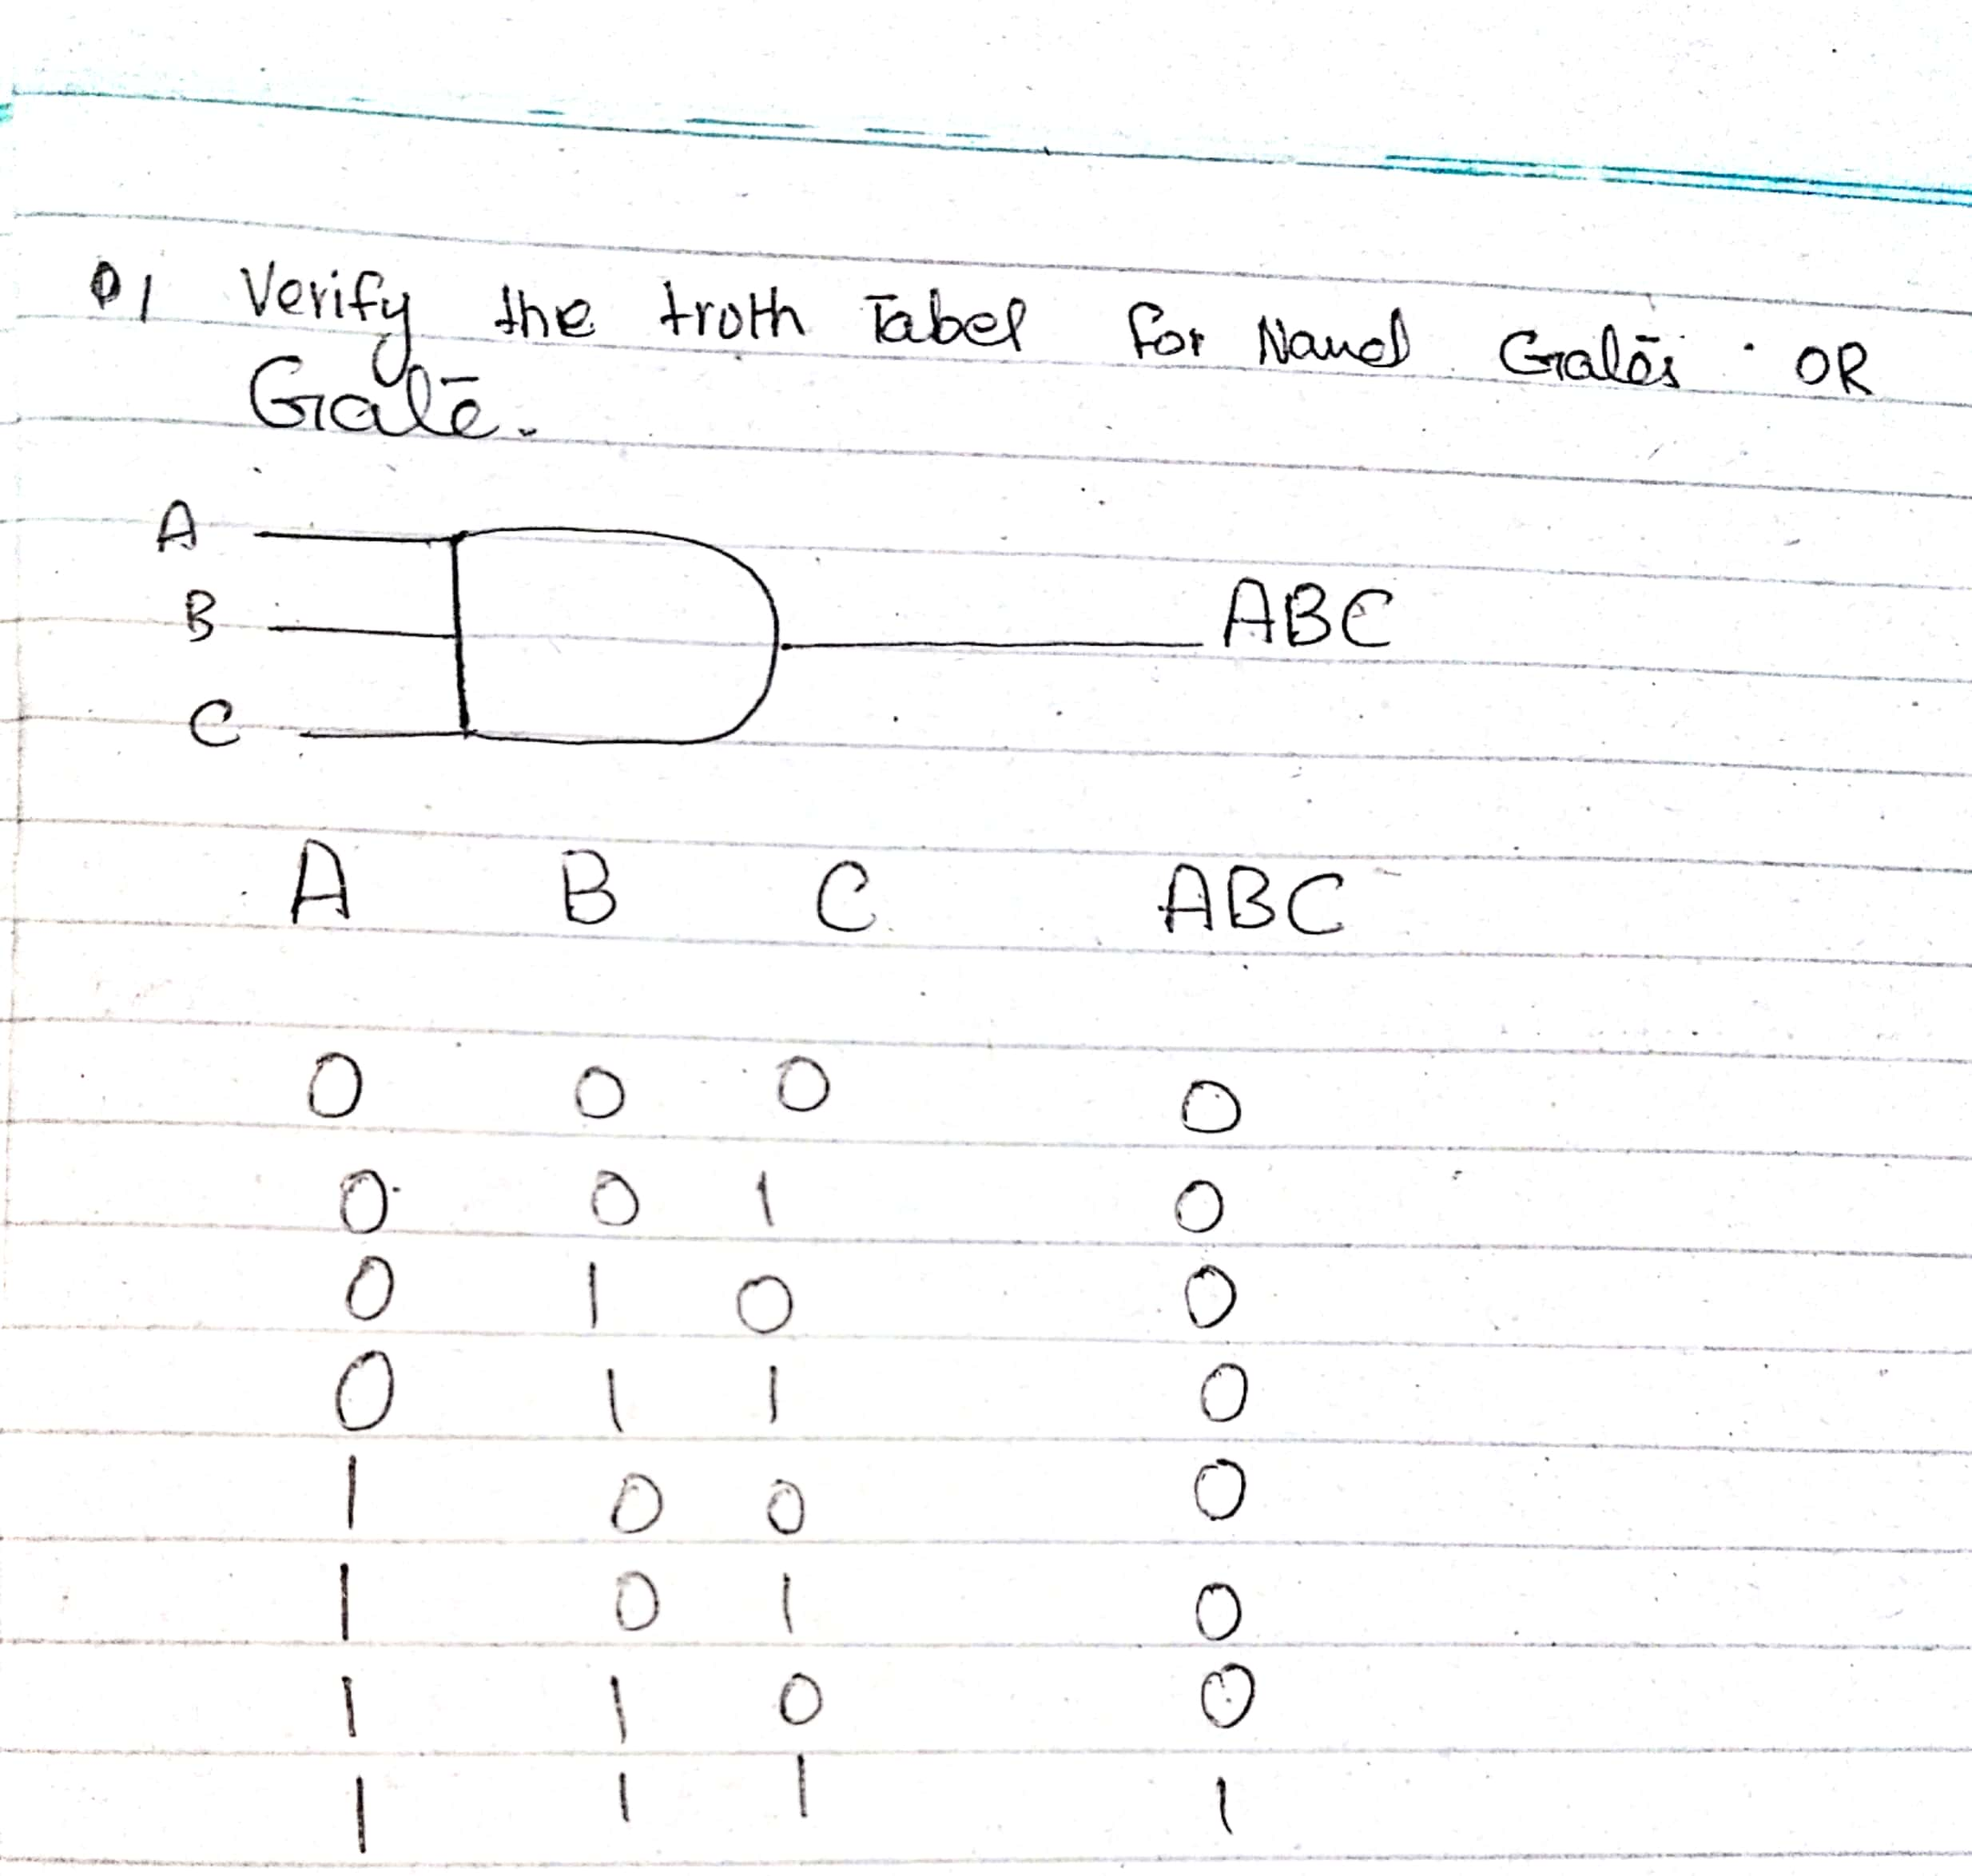 Q1 Verify the troth Tabel for Nand Gates . OR
Gate.
A
B
C
ABC
A B C ABC
0 0 0 0
0 0 1 0
0 1 0 0
0 1 1 0
1 0 0 0
1 0 1 0
1 1 0 0
1 1 1 1